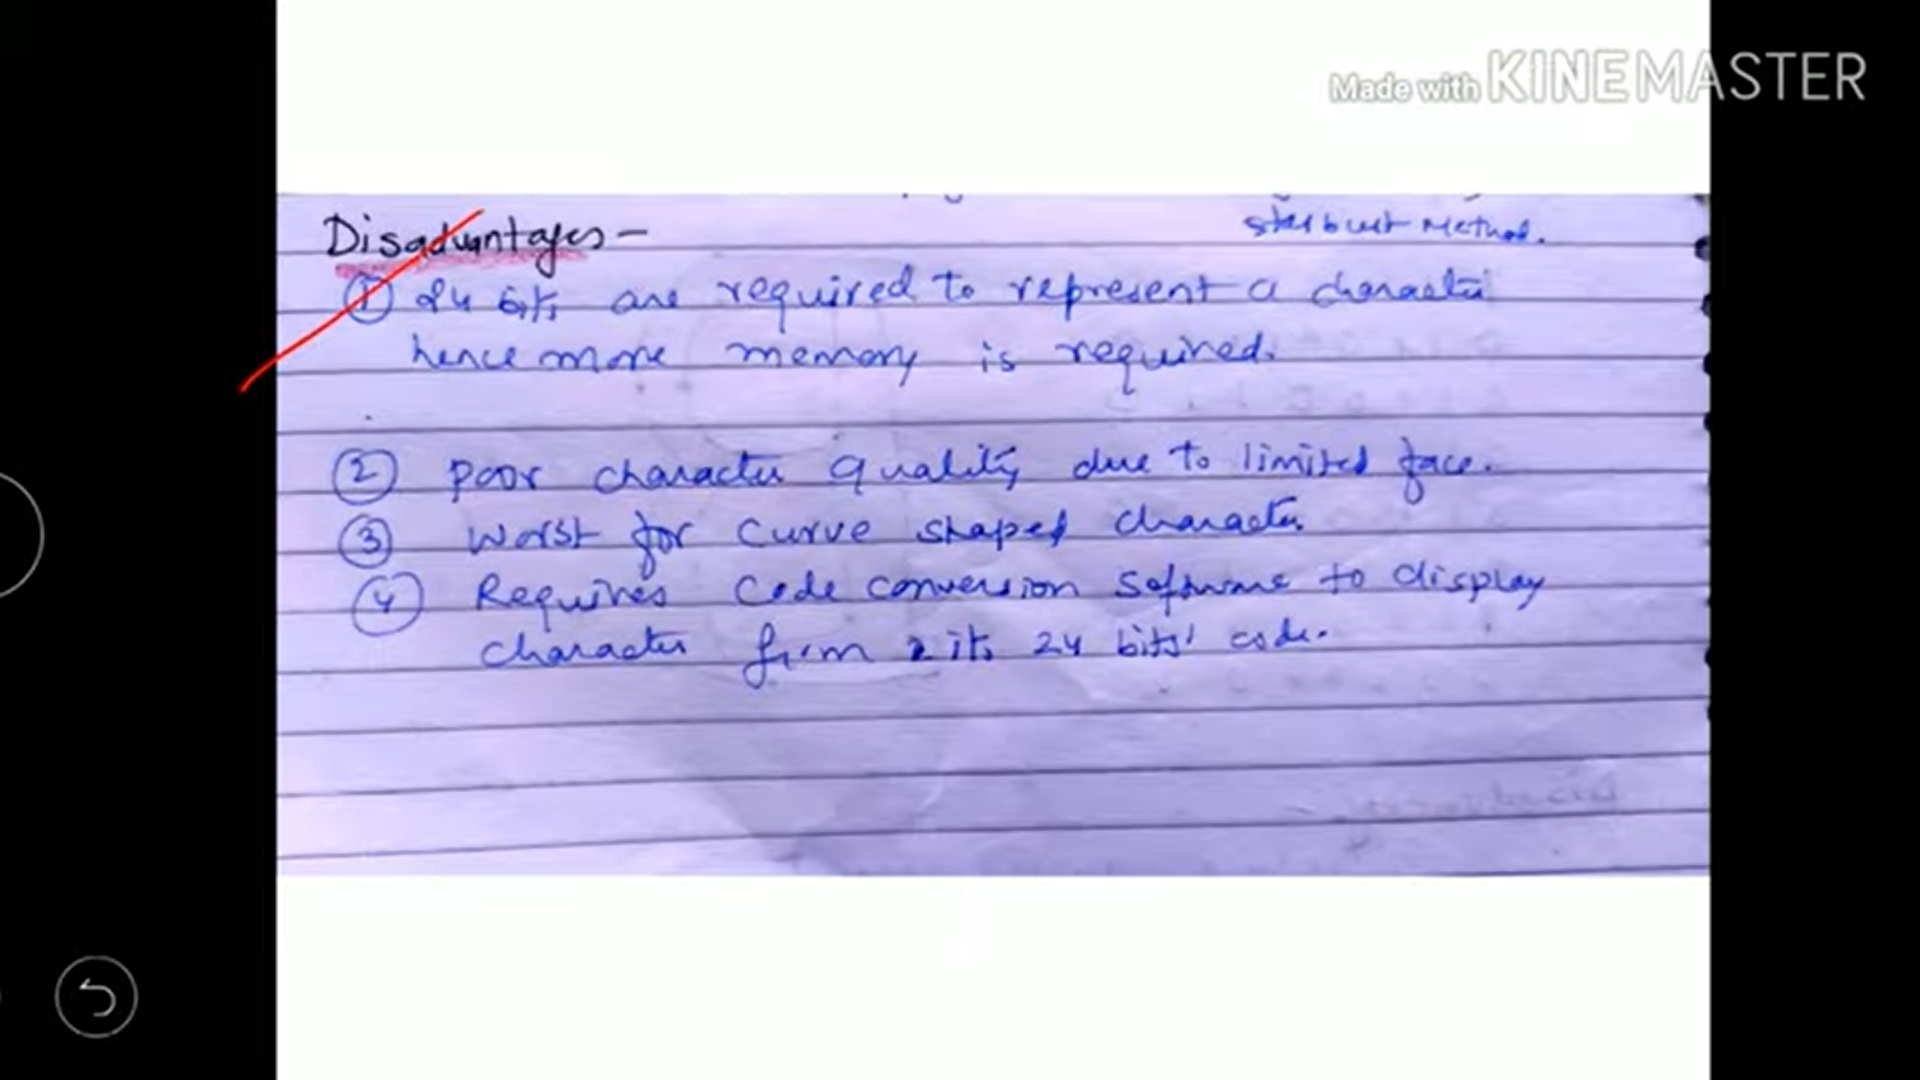 Made with KINEMASTER
starbust Method.
Disadvantages -
① 24 bits are required to represent a character
hence more memory is required.
② Poor character quality due to limited face.
③ Worst for curve shaped character.
④ Requires Code conversion Software to display
character from its 24 bits' code.